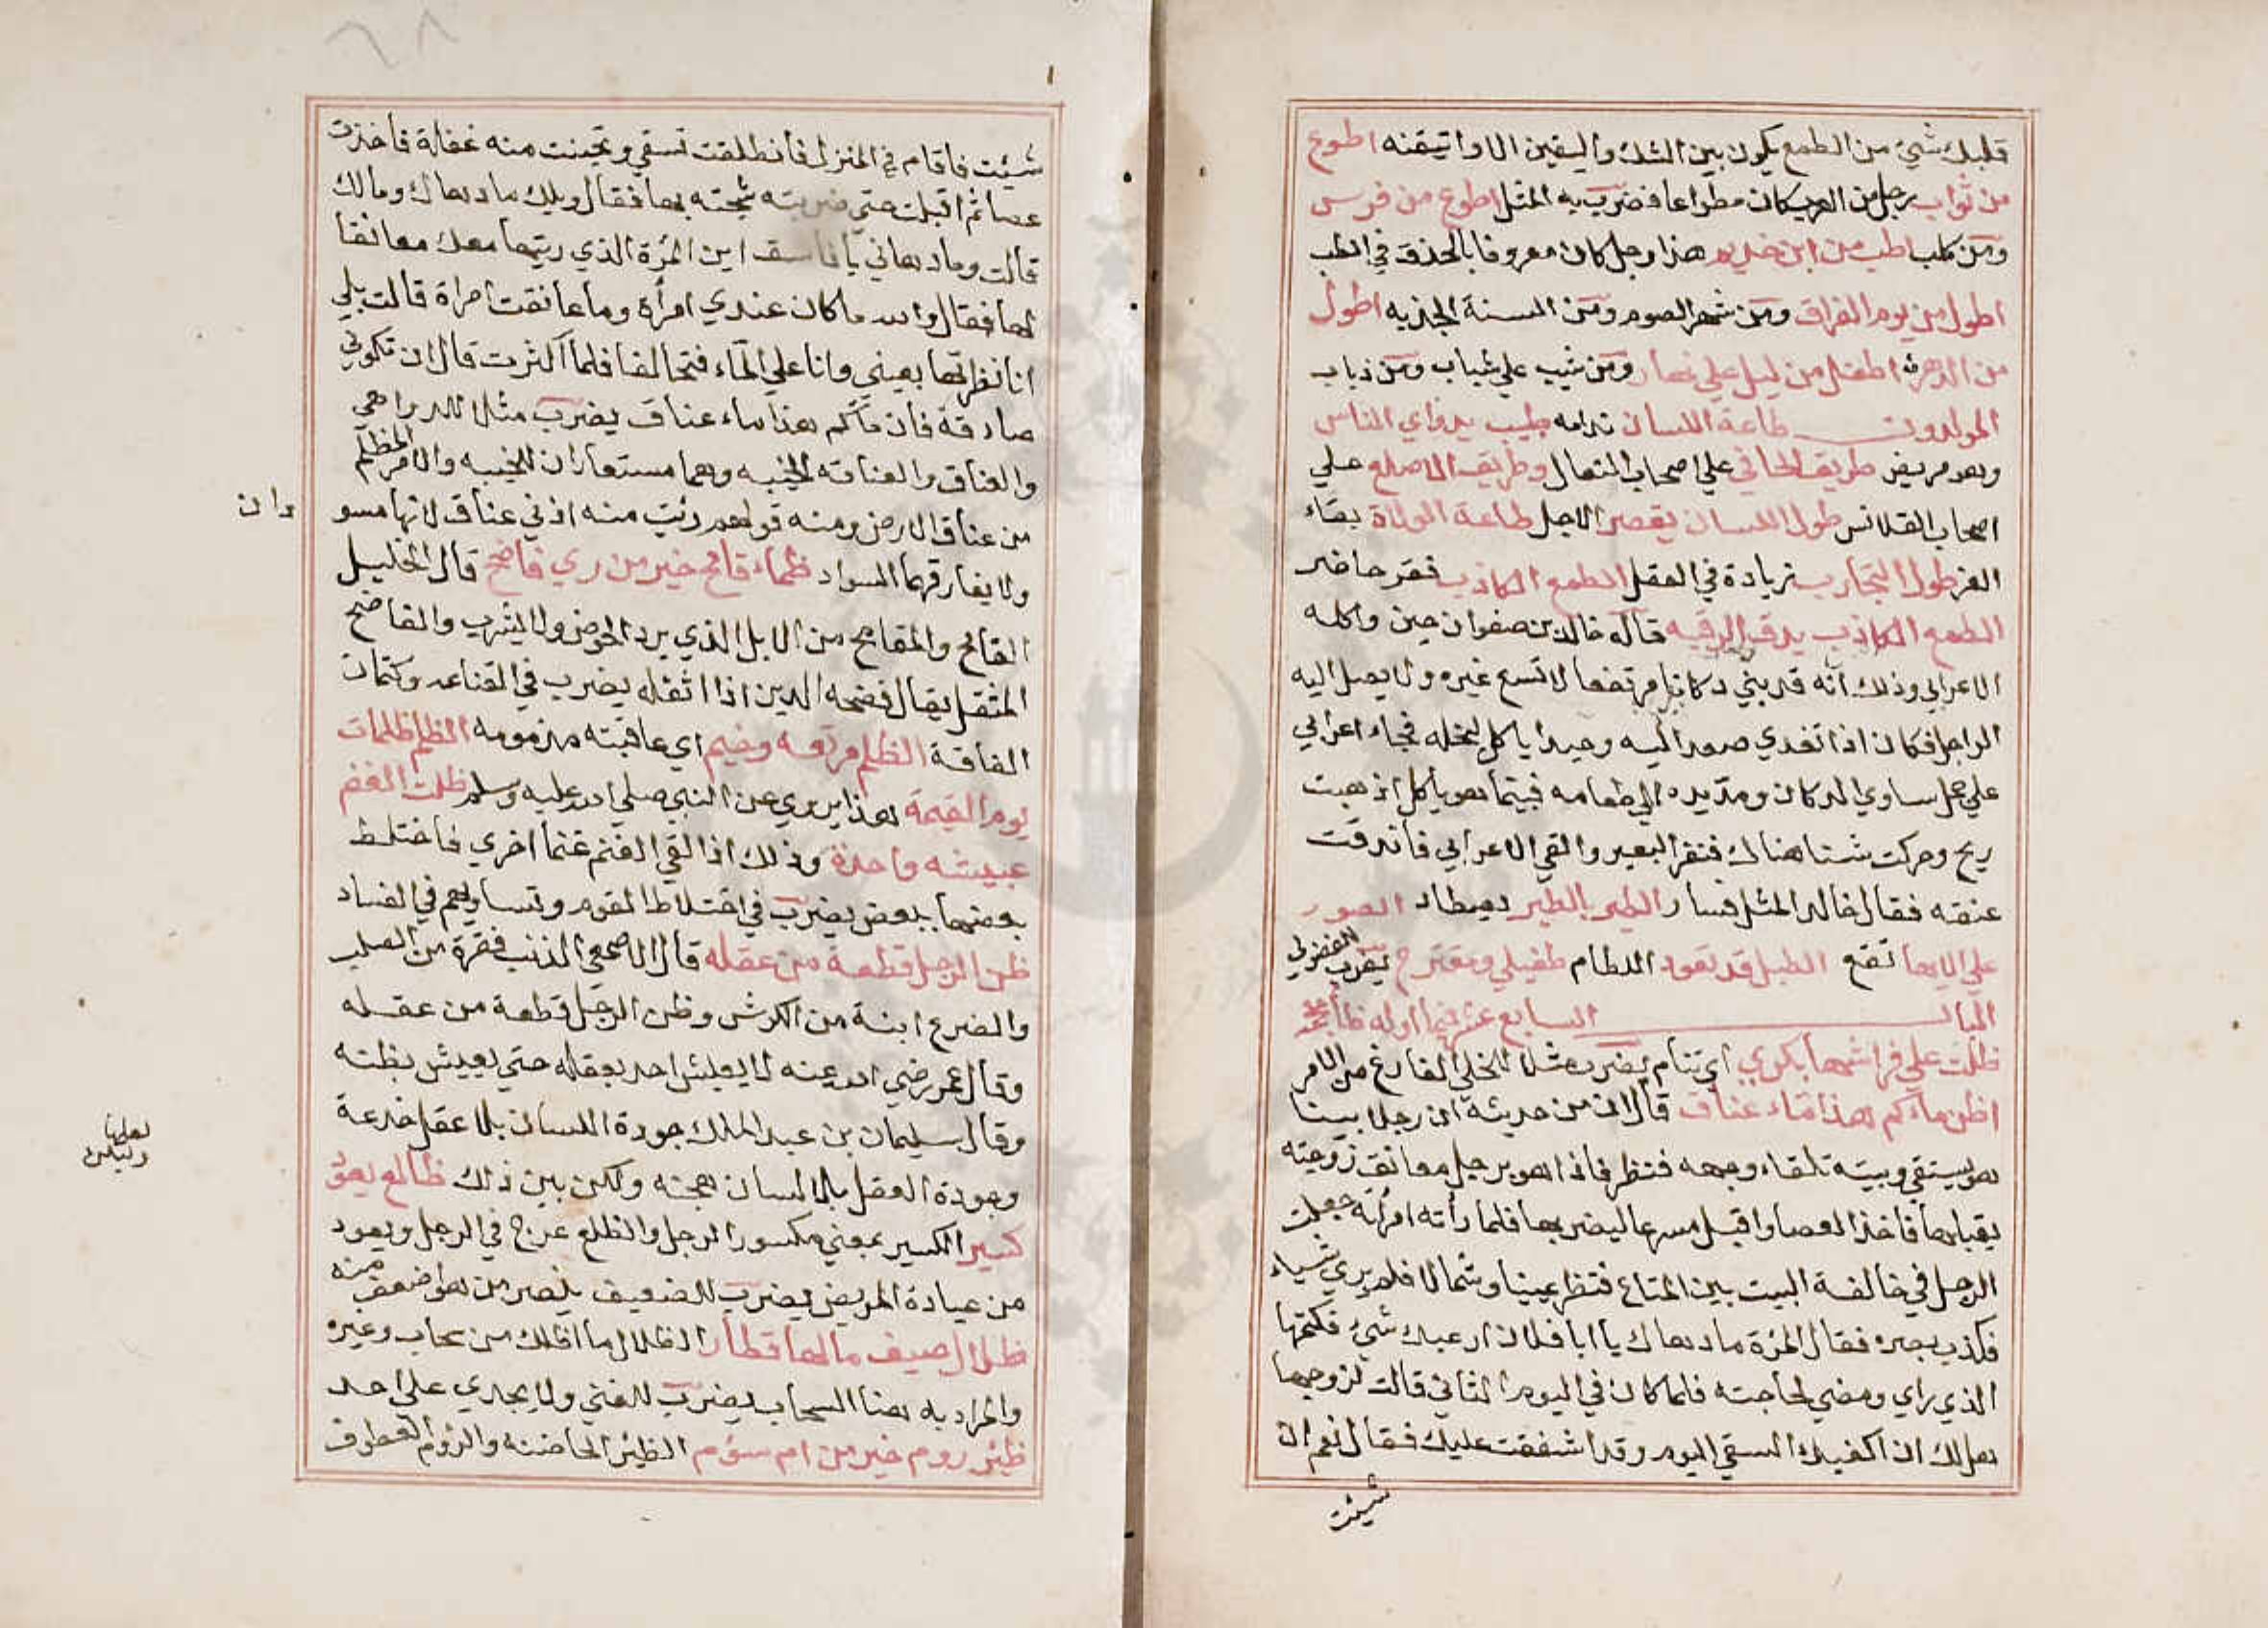 قلبك شيئ من الطمع يكون بين الشك واليقين الا واتيقنه اطوع
من ثواب رجل من العرب كان مطواعا فضرب به المثل اطوع من فرس
ومن كلب اطب من ابن حذيم هذا رجل كان معروفا بالحذق في الطب
اطول من يوم الفراق ومن شهر الصوم ومن السنة الجذبه اطول
من الدهر اطفل من ليل علي نهار ومن شيب علي شباب ومن ذباب
المولدون طاعة اللسان ندامه طبيب يداوي الناس
وهو مريض طريق الحافي علي اصحاب النعال وطريق الاصلع علي
اصحاب القلانس طول اللسان يقصر الاجل طاعة الولاة بقاء
العز طول التجارب زيادة في العقل الطمع الكاذب فقر حاضر
الطمع الكاذب يدق الرقبه قاله خالد بن صفوان حين واكله
الاعرابي وذلك انه قد بني دكانا مرتفعا لا تسع غيره ولا يصل اليه
الراجل فكان اذا تغدي صعد اليه وحيدا ياكل لبخله فجاء اعرابي
علي جمل ساوي الدكان ومد يده الي طعامه فبينما هو ياكل اذ هبت
ريح وحركت شنا هناك فنفر البعير والقي الاعرابي فاندقت
عنقه فقال خالد المثل فسار الطير بالطير يصطاد الطيور
علي الافها تقع الطبل قد تعود اللطام طفيلي ومقترح يضرب للفضولي
الباب السابع عشر فيما اوله ظاء
ظلت علي فراشها بكري اي تنام يضرب مثلا للخلي الفارغ من الامر
اظن ماءكم هذا ماء عناق قال ان من حديثه ان رجلا بينا
هو يستقي وبيته تلقاء وجهه فنظر فاذا هو برجل معانق زوجته
يقبلها فاخذ العصا واقبل مسرعا ليضربها فلما رأته امرأته جعلت
الرجل في خالفة البيت بين المتاع فنظر يمينا وشمالا فلم يري شياء
فكذب بصره فقال المرة ما دهاك يا ابا فلان ارعبك شيئ فكتمها
الذي راي ومضي لحاجته فلما كان في اليوم الثاني قالت لزوجها
هل لك ان اكفيك السقي اليوم وقد اشفقت عليك فقال نعم ان
شيئت
شيئت فاقام في المنزل فانطلقت تسقي وتحينت منه غفلة فاخذت
عصا ثم اقبلت حتي ضربته شجته بها فقال ويلك ما دهاك ومالك
قالت وما دهاني يا فاسق اين المرة الذي ريتها معك معانقا
لها فقال والله ما كان عندي امرأة وما عانقت امراة قالت بلي
انا نظرتها بعيني وانا علي الماء فتحالفا فلما اكثرت قال ان تكوني
صادقة فان ماكم هذا ماء عناق يضرب مثلا للدواهي
والعناق والعناقه الخيبه وهما مستعاران للخيبه والامر المظلم
من عناق الارض ومنه قولهم رئيت منه اذني عناق لانها مسو
دان
ولا يفارقهما السواد ظماء قامح خير من ري فاضح قال الخليل
القامح والمقامح من الابل الذي يرد الحوض ولا يشرب والفاضح
المثقل يقال فضحه الدين اذا اثقله يضرب في القناعه وكتمان
الفاقة الظلم مرتعه وخيم اي عاقبته مذمومه الظلم ظلمات
يوم القيمة هذا يروي عن النبي صلي الله عليه وسلم ظلت الغنم
عبيثه واحدة وذلك اذا لقي الغنم غنما اخري فاختلط
بعضها ببعض يضرب في اختلاط القوم وتساويهم في الفساد
ظن الرجل قطعة من عقله قال الاصمعي الذنب فقرة من الصلب
والضرع ابنة من الكرش وظن الرجل قطعة من عقله
وقال عمر رضي الله عنه لا يعيش احد بعقله حتي يعيش بظنه
وقال سليمان بن عبد الملك جودة اللسان بلا عقل خدعة
وجودة العقل بلا لسان هجنه ولكن بين ذلك ظالع يعود
كسير الكسير بمعني مكسور الرجل والظلع عرج في الرجل ويعود
من عيادة المريض يضرب للضعيف ينصر من هو اضعف منه
ظلال صيف مالها قطار الظلال ما اظلك من سحاب وغيره
والمراد به هنا السحاب يضرب للغني ولا يجدي علي احد
ظئر روم خير من ام سئوم الظئر الحاضنه والرؤم العطوف